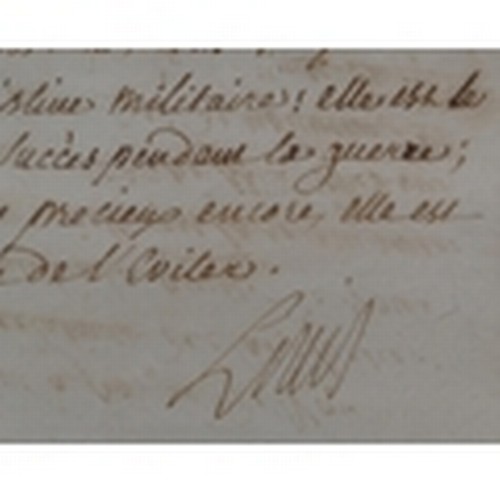 isline militaire; elle est le
Succès pendant la guerre;
precieux encore, elle est
de l'Eviter.
Louis